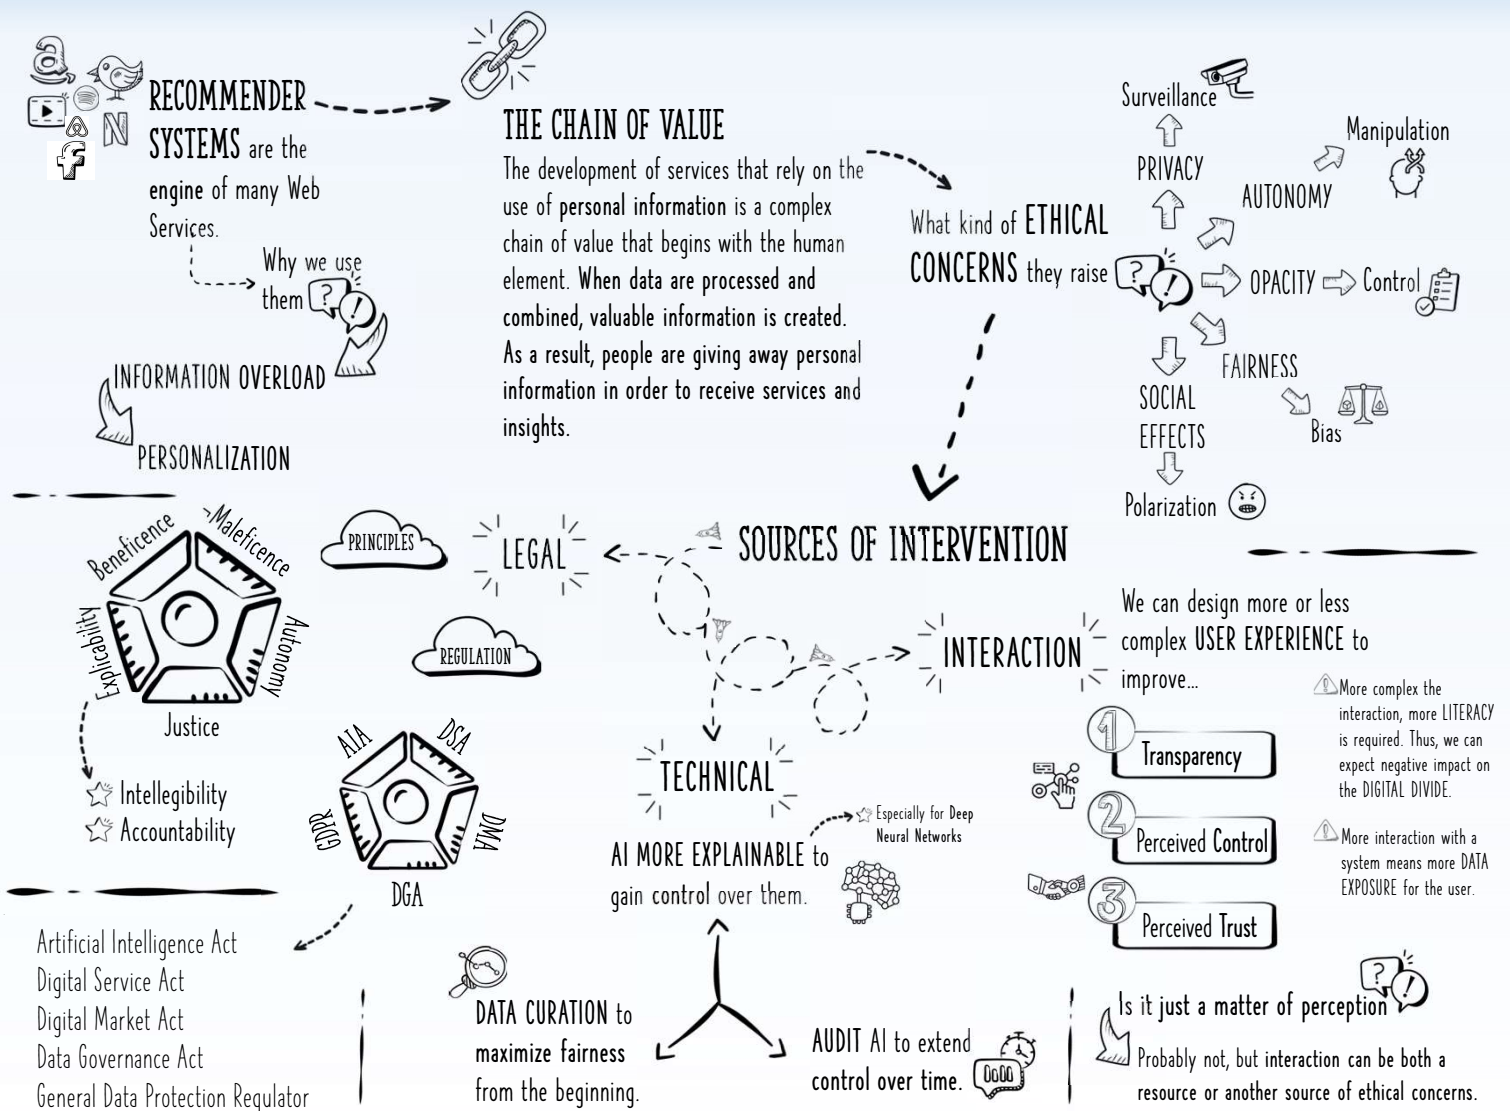 RECOMMENDER
SYSTEMS are the
engine of many Web
Services.
Why we use
them
?
!
INFORMATION OVERLOAD
PERSONALIZATION
THE CHAIN OF VALUE
The development of services that rely on the
use of personal information is a complex
chain of value that begins with the human
element. When data are processed and
combined, valuable information is created.
As a result, people are giving away personal
information in order to receive services and
insights.
What kind of ETHICAL
CONCERNS they raise
?
!
Surveillance
PRIVACY
Manipulation
AUTONOMY
OPACITY
Control
FAIRNESS
Bias
SOCIAL
EFFECTS
Polarization
SOURCES OF INTERVENTION
LEGAL
PRINCIPLES
REGULATION
Beneficence
¬Maleficence
Autonomy
Justice
Explicability
Intellegibility
Accountability
AIA
DSA
DMA
DGA
GDPR
Artificial Intelligence Act
Digital Service Act
Digital Market Act
Data Governance Act
General Data Protection Regulator
TECHNICAL
Especially for Deep
Neural Networks
AI MORE EXPLAINABLE to
gain control over them.
DATA CURATION to
maximize fairness
from the beginning.
AUDIT AI to extend
control over time.
INTERACTION
We can design more or less
complex USER EXPERIENCE to
improve...
1
Transparency
2
Perceived Control
3
Perceived Trust
More complex the
interaction, more LITERACY
is required. Thus, we can
expect negative impact on
the DIGITAL DIVIDE.
More interaction with a
system means more DATA
EXPOSURE for the user.
Is it just a matter of perception
?
!
Probably not, but interaction can be both a
resource or another source of ethical concerns.